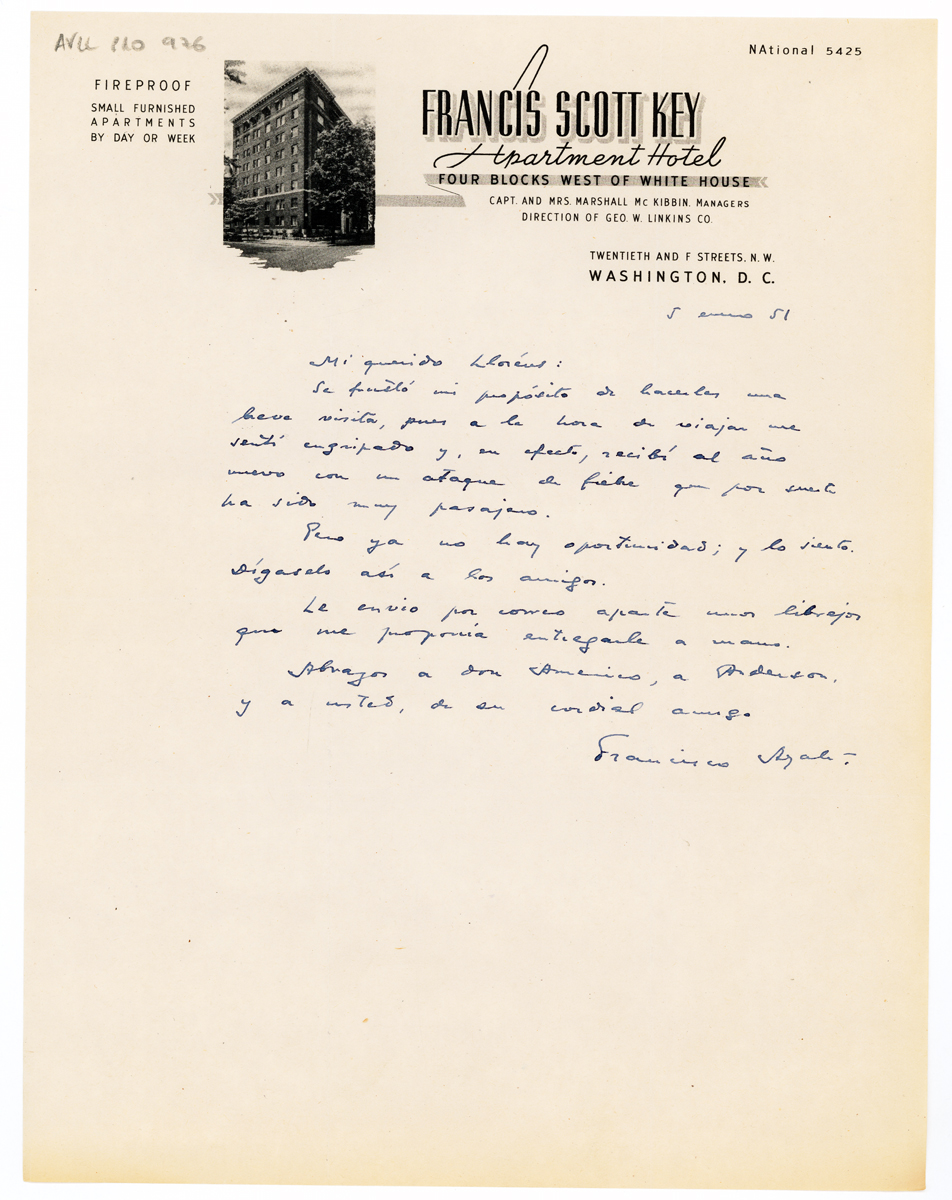 AVLL 110 976
NAtional 5425
FIREPROOF
SMALL FURNISHED
APARTMENTS
BY DAY OR WEEK
FRANCIS SCOTT KEY
Apartment Hotel
FOUR BLOCKS WEST OF WHITE HOUSE
CAPT. AND MRS. MARSHALL Mc KIBBIN, MANAGERS
DIRECTION OF GEO. W. LINKINS CO.
TWENTIETH AND F STREETS, N. W.
WASHINGTON, D. C.
5 enero 51
Mi querido Lloréns:
Se frustró mi propósito de hacerles una
breve visita, pues a la hora de viajar me
sentí engripado y, en efecto, recibí al año
nuevo con un ataque de fiebre que por suerte
ha sido muy pasajero.
Pero ya no hay oportunidad; y lo siento.
Dígaselo así a los amigos.
Le envío por correo aparte unos librejos
que me proponía entregarle a mano.
Abrazos a don Américo, a Anderson,
y a usted, de su cordial amigo
Francisco Ayala.